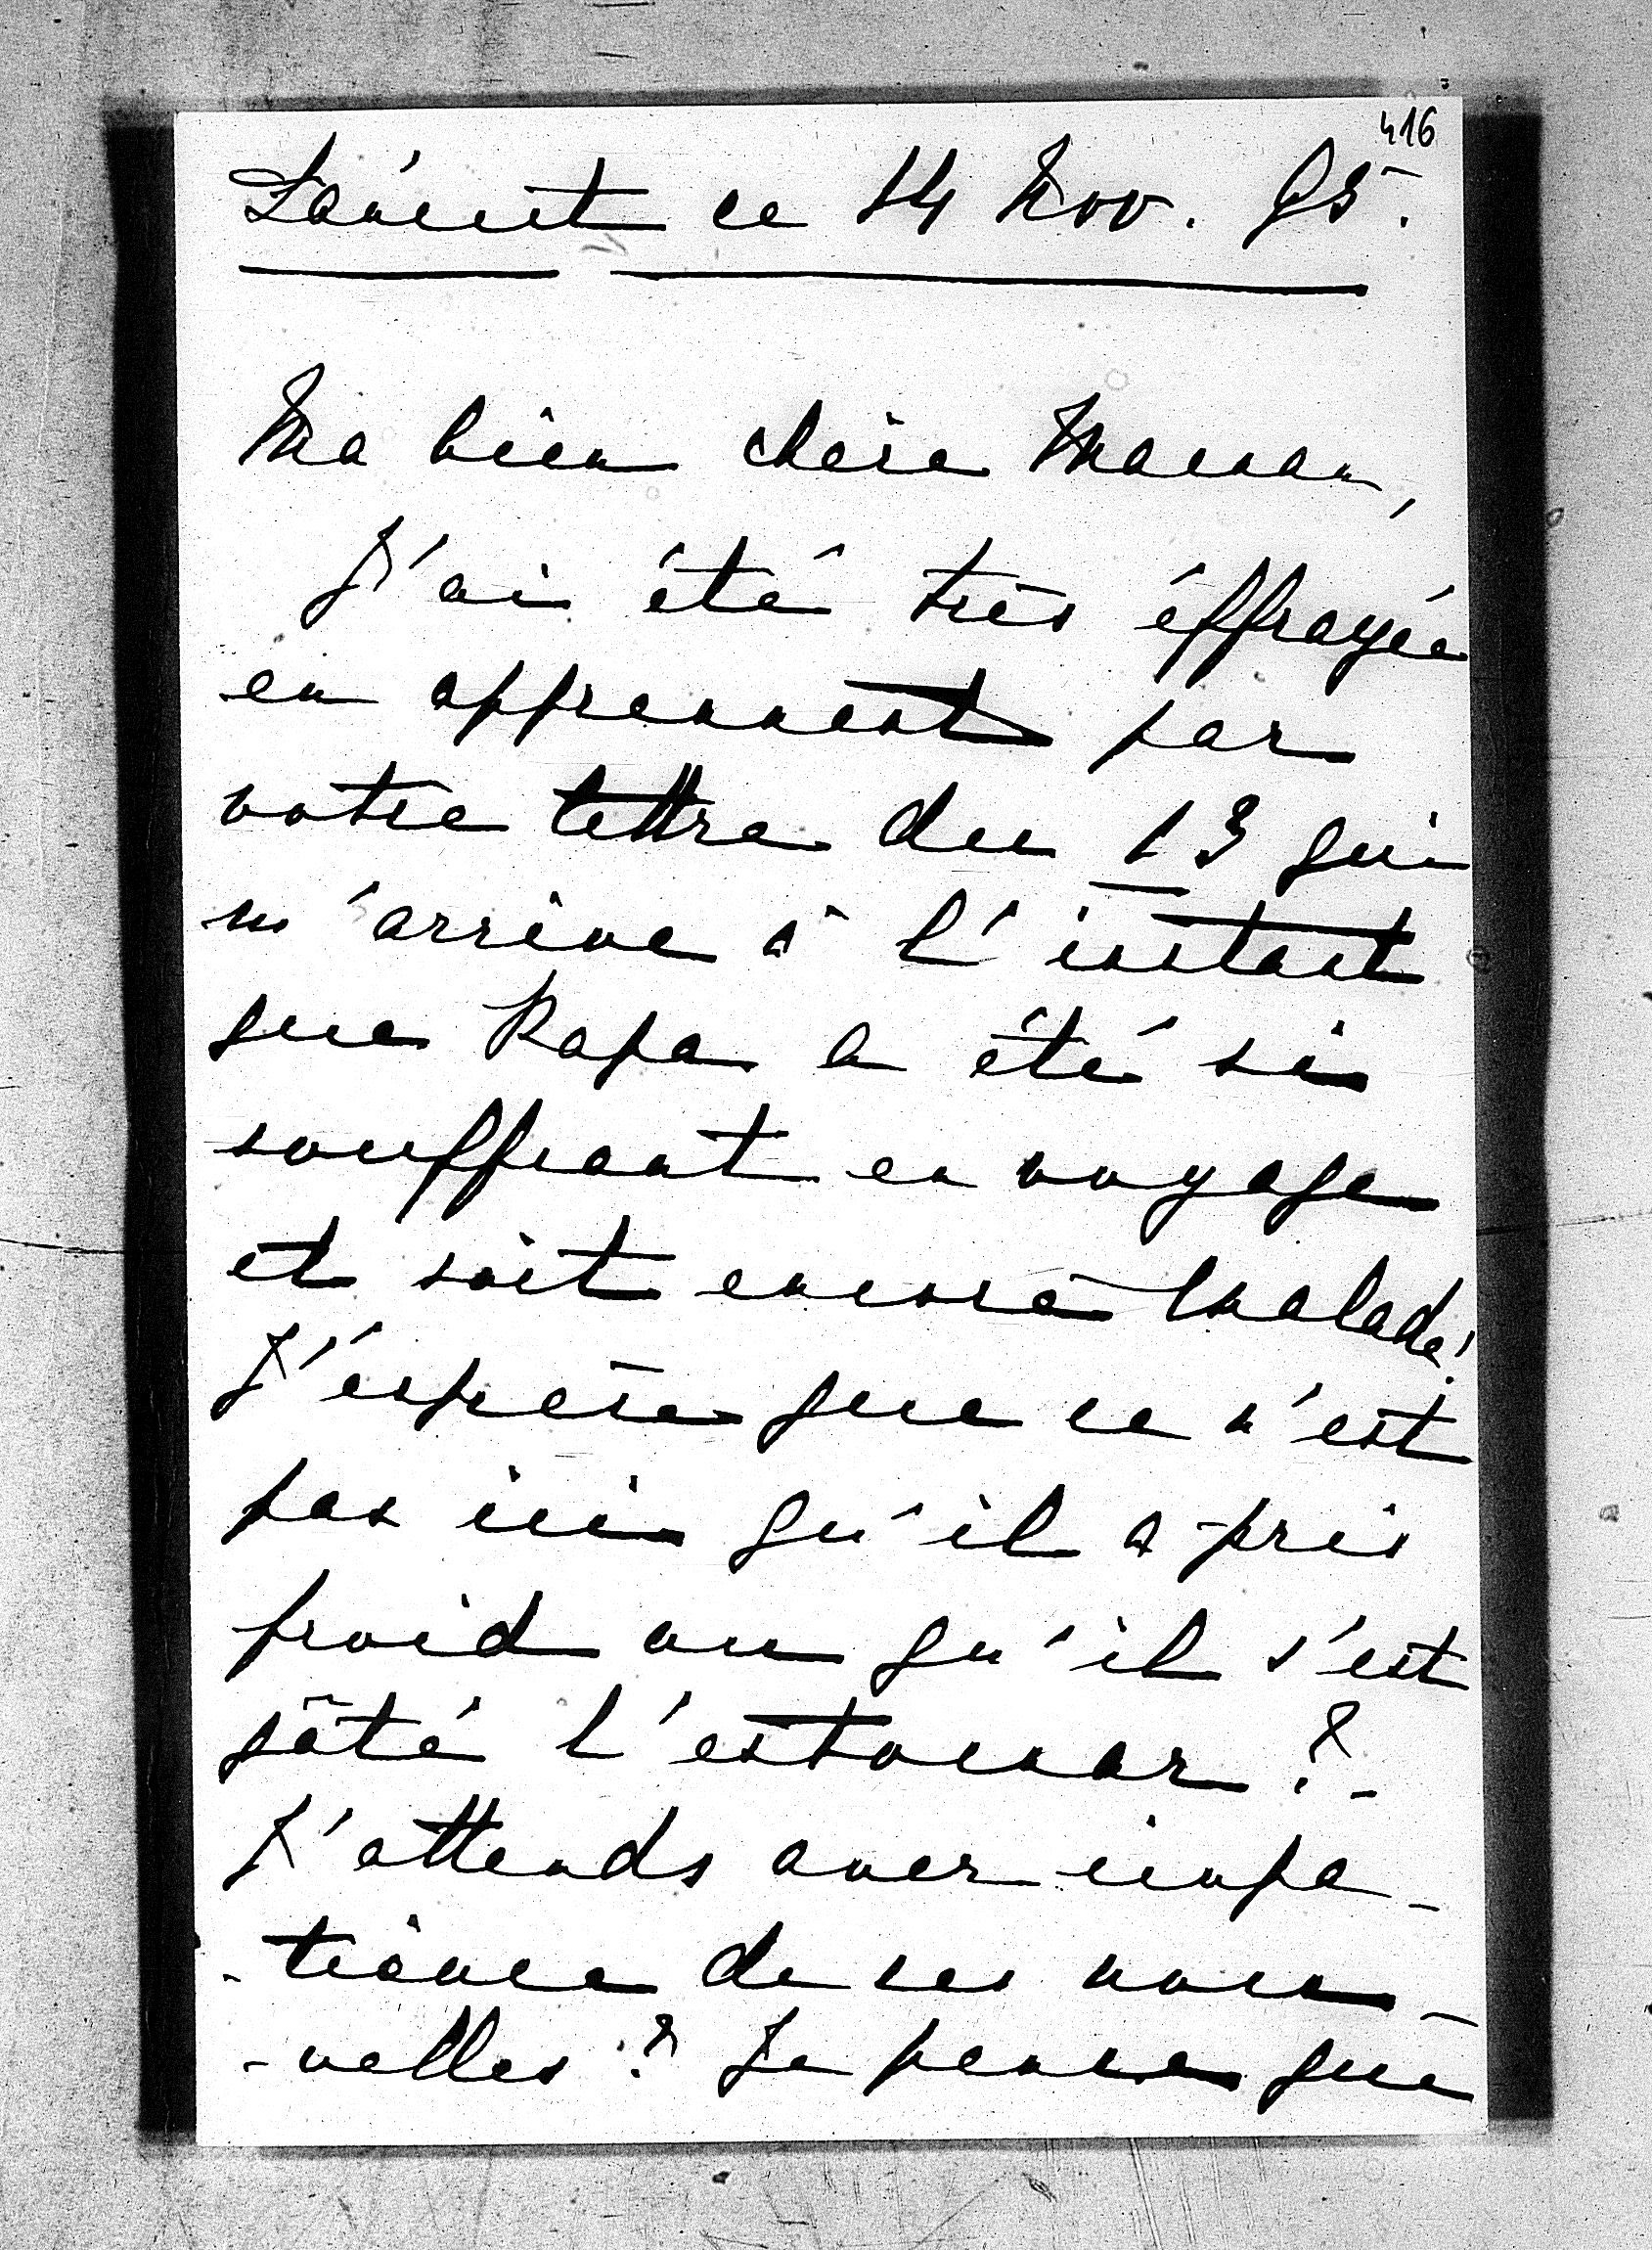 416
Lancut ce 14 Nov. 95.
Ma bien chère Maman,
J'ai été très éffrayée
en apprenant par
votre lettre du 13 qui
m'arrive à l'instant
que Papa a été si
souffrant en voyage
et soit encore malade!
J'espère que ce n'est
pas ici qu'il a pris
froid ou qu'il s'est
gâté l'estomac ?-
J'attends avec impa-
-tience de ses nou-
-velles ? Je pense que